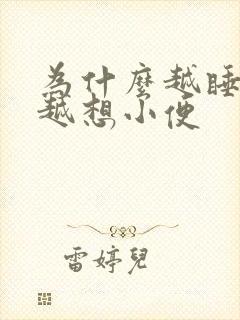 為什麼越睡
越想小便
雷婷兒